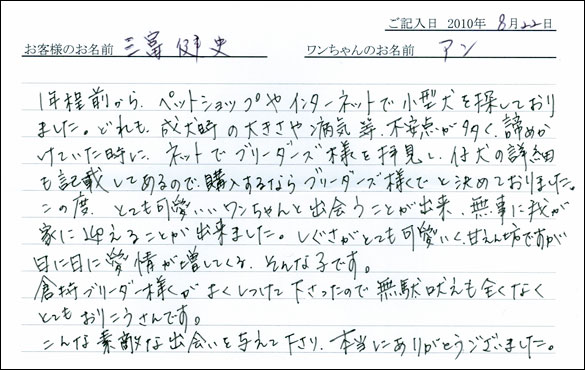 ご記入日 2010年 8月22日
お客様のお名前 三富 健史 ワンちゃんのお名前 アン
1年程前から、ペットショップやインターネットで小型犬を探しており
ました。どれも、成犬時の大きさや病気等、不安点が多く、諦めか
けていた時に、ネットでブリーダーズ様を拝見し、仔犬の詳細
も記載してあるので、購入するならブリーダーズ様でと決めておりました。
この度、とても可愛いいワンちゃんと出会うことが出来、無事に我が
家に迎えることが出来ました。しぐさがとても可愛いく、甘えん坊ですが
日に日に愛情が増してくる、そんな子です。
倉持ブリーダー様がよくしつけて下さったので無駄吠えも全くなく
とてもおりこうさんです。
こんな素敵な出会いを与えて下さり、本当にありがとうございました。